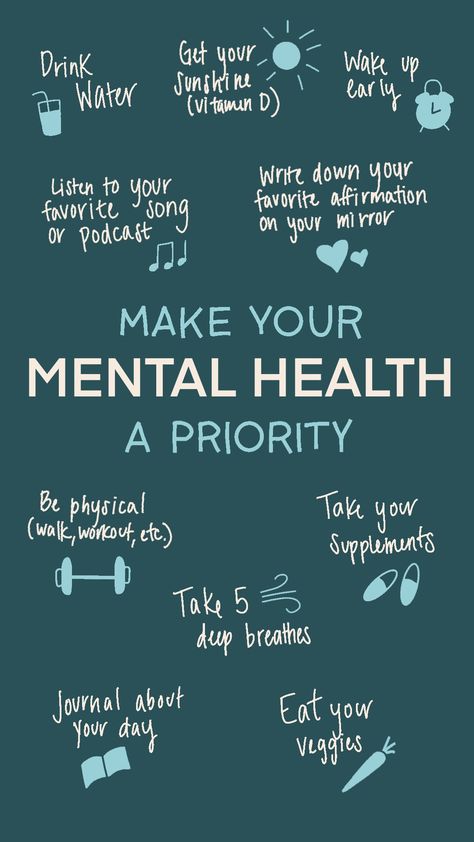 Drink
Water
Get your
sunshine
(vitamin D)
Wake up
early
Listen to your
favorite song
or podcast
Write down your
favorite affirmation
on your mirror
MAKE YOUR
MENTAL HEALTH
A PRIORITY
Be physical
(walk, workout, etc.)
Take your
supplements
Take 5
deep breathes
Journal about
your day
Eat your
veggies